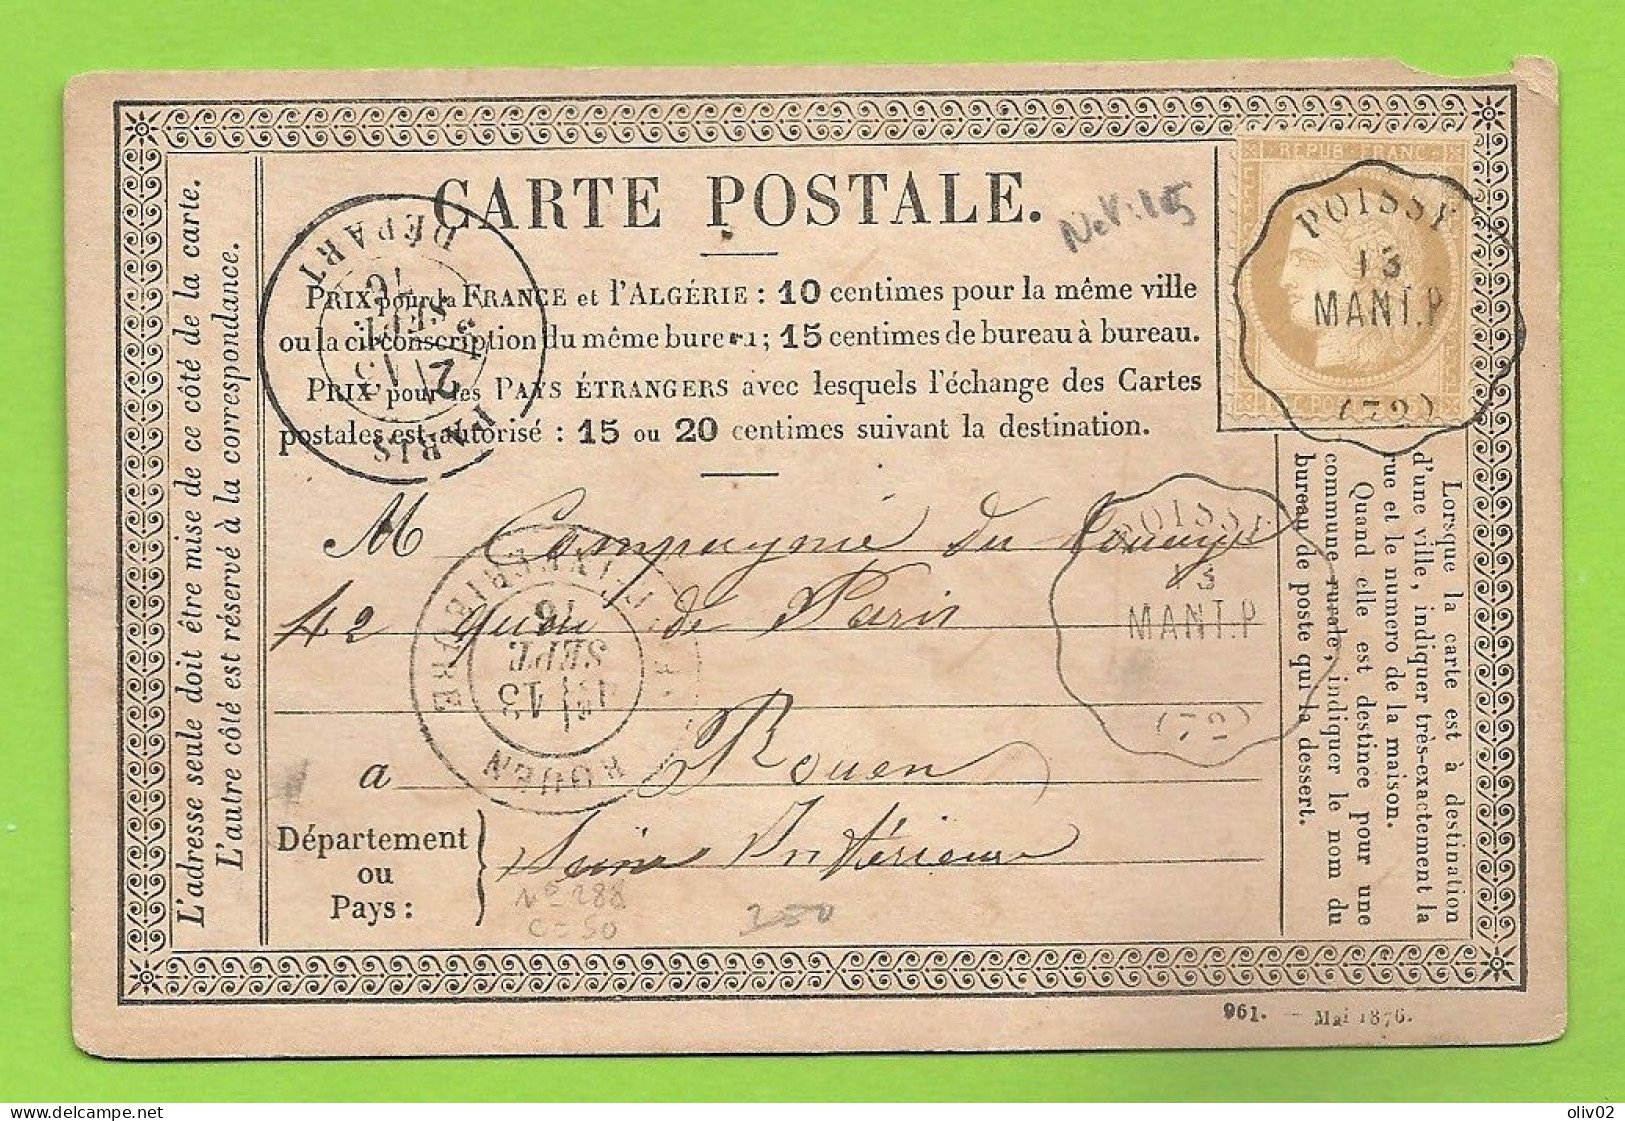 CARTE POSTALE.
PRIX pour la FRANCE et l'ALGÉRIE : 10 centimes pour la même ville
ou la circonscription du même bureau ; 15 centimes de bureau à bureau.
PRIX pour les PAYS ÉTRANGERS avec lesquels l'échange des Cartes
postales est autorisé : 15 ou 20 centimes suivant la destination.
REPUB FRANC
POISSY
13
MANT.P
(72)
PARIS DÉPART
SEPT
76
POISSY
13
MANT.P
(72)
M Compagnie du
42 quai de Paris
a Rouen
Département
ou
Pays :
Seine Inférieure
ROUEN
SEINE-INFÉRIEURE
13
SEPT
76
L'adresse seule doit être mise de ce côté de la carte.
L'autre côté est réservé à la correspondance.
Lorsque la carte est à destination
d'une ville, indiquer très-exactement la
rue et le numero de la maison.
Quand elle est destinée pour une
commune rurale, indiquer le nom du
bureau de poste qui la dessert.
No 288
C = 50
961. — Mai 1876.
www.delcampe.net
oliv02